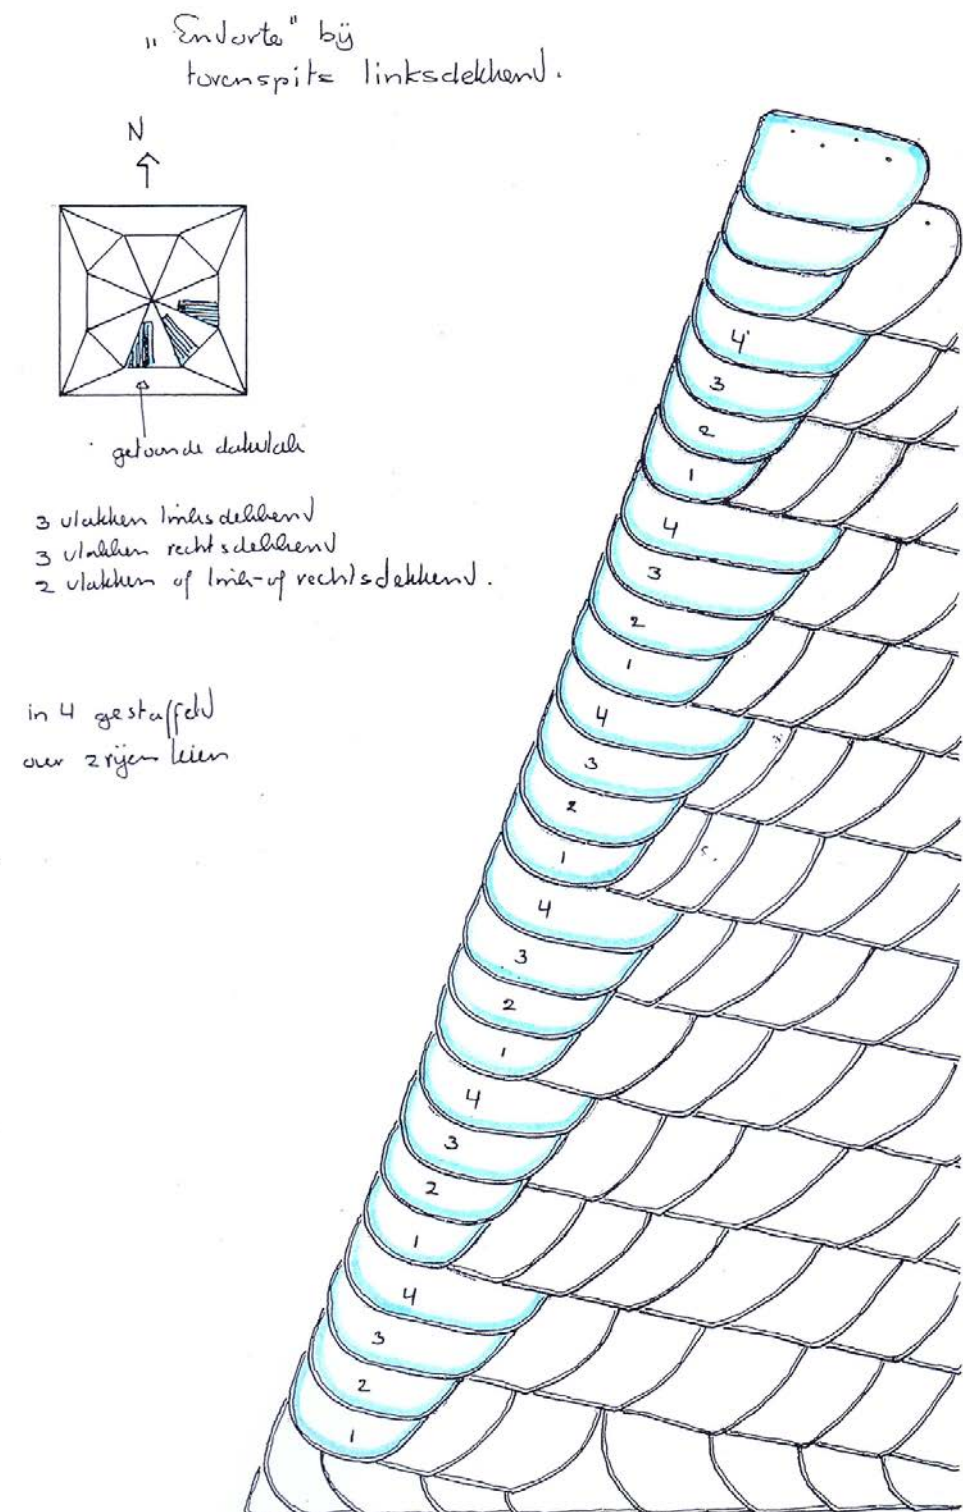 „Endorte" bij
torenspits linksdekkend.
N
getoonde dakvlak
3 vlakken linksdekkend
3 vlakken rechtsdekkend
2 vlakken of link- of rechtsdekkend.
in 4 gestaffeld
over 2 rijen leien
4
3
2
1
4
3
2
1
4
3
2
1
4
3
2
1
4
3
2
1
4
3
2
1